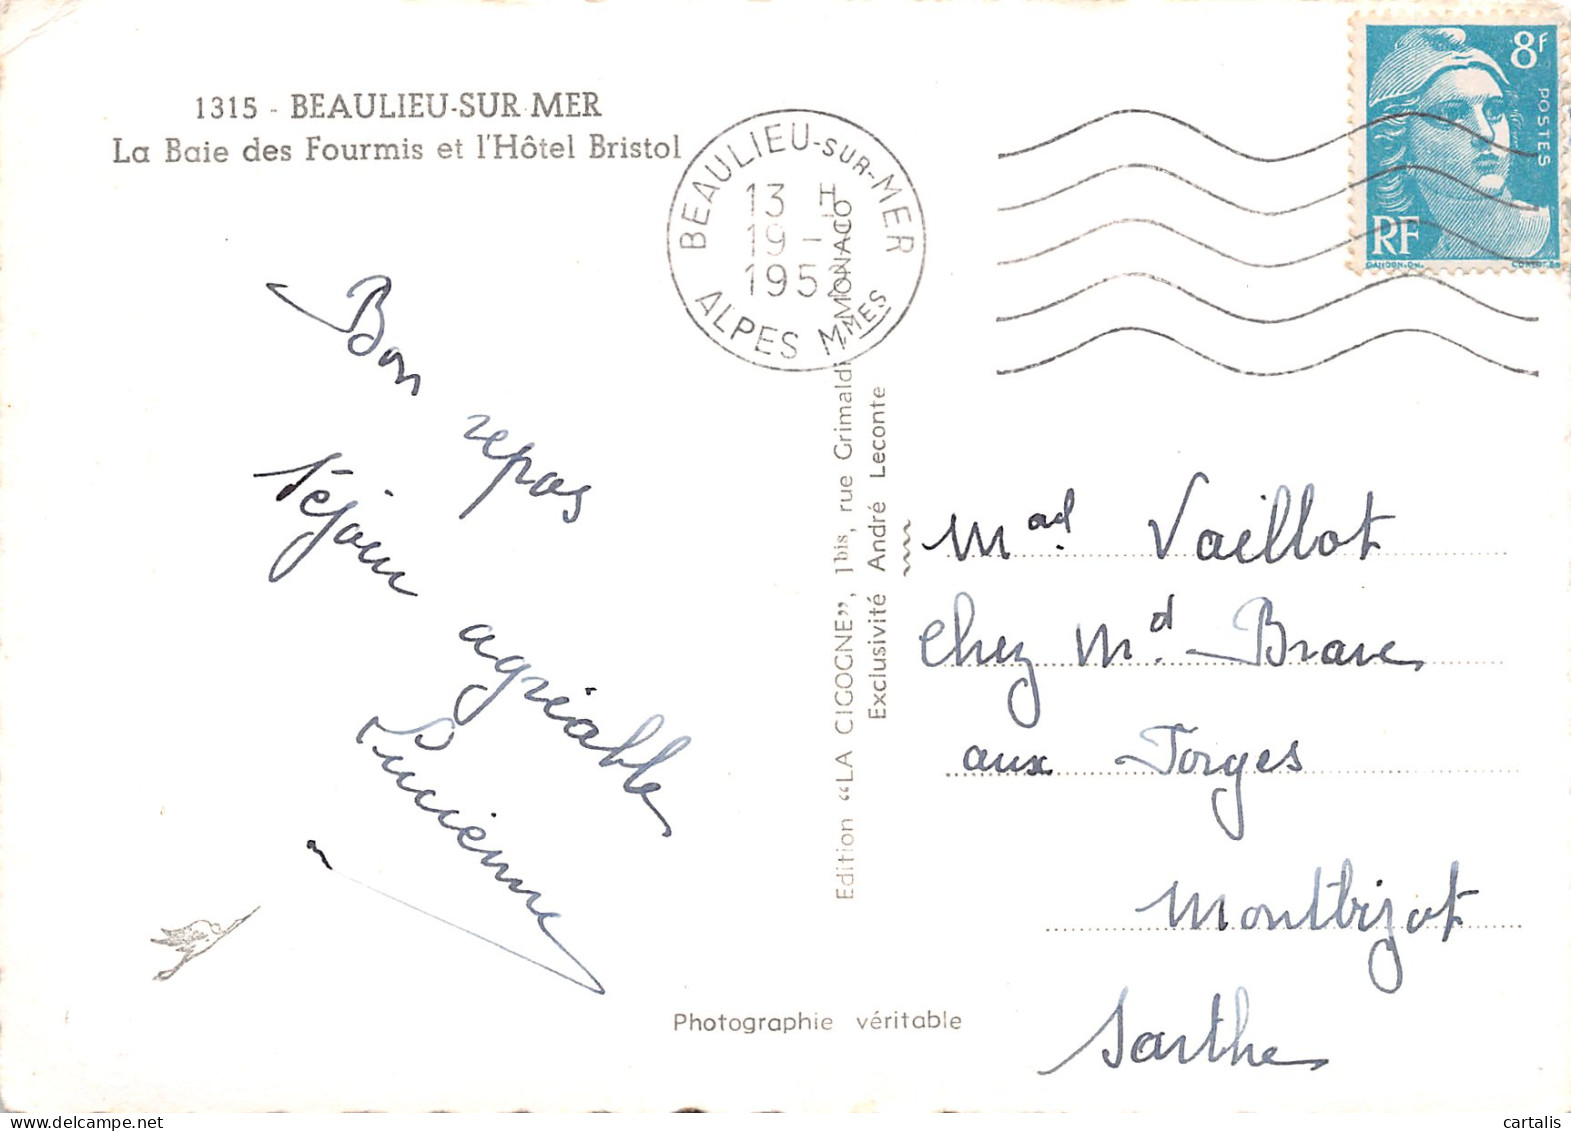 1315 - BEAULIEU-SUR-MER
La Baie des Fourmis et l'Hôtel Bristol
BEAULIEU-SUR-MER
13 H
19 -
195
ALPES MMES
8F
POSTES
RF
GANDON.DEL.
Bon repas
séjour agréable
Lucienne
Edition “LA CIGOGNE”, 1bis, rue Grimaldi - MONACO
Exclusivité André Leconte
Mad. Vaillot
chez Md. Brave
aux Forges
Montbizot
Sarthe
Photographie véritable
cartalis